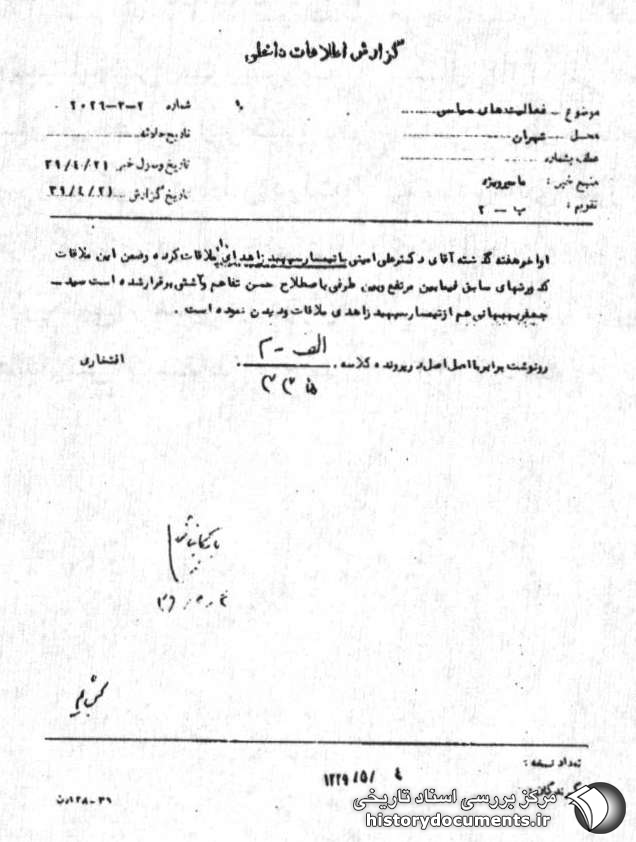 گزارش اطلاعات داخلی
موضوع - فعالیت‌های سیاسی
شماره ۲-۳-۲۰۲۶
محل - تهران
تاریخ حادثه
عطف بشماره
تاریخ وصول خبر ۳۹/۴/۲۱
منبع خبر :
تاریخ گزارش ۳۹/۴/۲۱
تقویم : ب - ۲
اواخر هفته گذشته آقای دکتر علی امینی با تیمسار سپهبد زاهدی ملاقات کرده وضمن این ملاقات
کدورتهای سابق فیمابین مرتفع وبین طرفین باصطلاح حسن تفاهم وآشتی برقرار شده است سید -
جعفر بهبهانی هم از تیمسار سپهبد زاهدی ملاقات ودیدن نموده است .
رونوشت برابر با اصل اصل در پرونده کلاسه . الف - ۲
افتخاری
بایگانی شود
تعداد نسخه :
گیرندگان :
۴ /۵/ ۱۳۳۹
مرکز بررسی اسناد تاریخی
historydocuments.ir